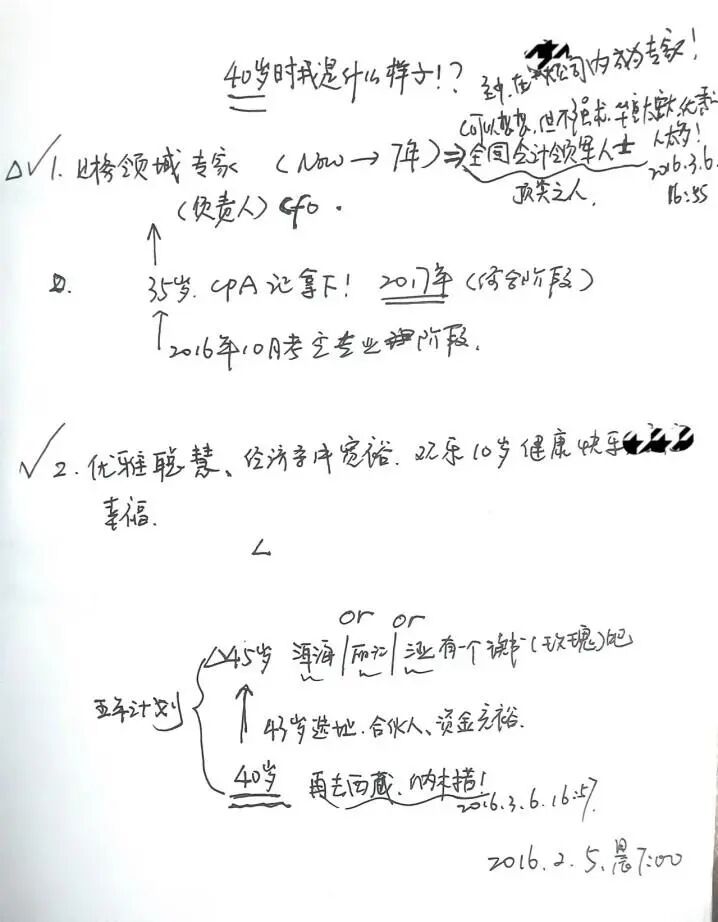 40岁时我是什么样子!?
在 公司内成为专家!
可以梦想,但不强求.
人太多!
△√1. 财务领域专家 (Now→7年)⇒全国会计领军人士
2016.3.6.
16:55
(负责人) CFO.
顶尖之人.
35岁. CPA证拿下! 2017年 (综合阶段)
2016年10月考完专业阶段.
√2. 优雅聪慧、经济宽裕. 欢乐10岁健康快乐
幸福.
or or
五年计划
△45岁 洱海|丽江| 有一个读书(玫瑰)吧
43岁选址.合伙人、资金充裕.
40岁 再去西藏.纳木措!
2016.3.6.16:57.
2016.2.5.晨7:00